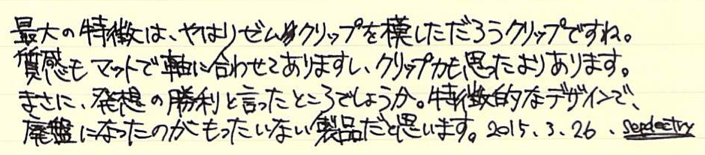 最大の特徴は、やはりゼムクリップを模しただろうクリップですね。
質感もマットで軸に合わせてありますし、クリップ力も思ったよりあります。
まさに、発想の勝利と言ったところでしょうか。特徴的なデザインで、
廃盤になったのがもったいない製品だと思います。2015.3.26.